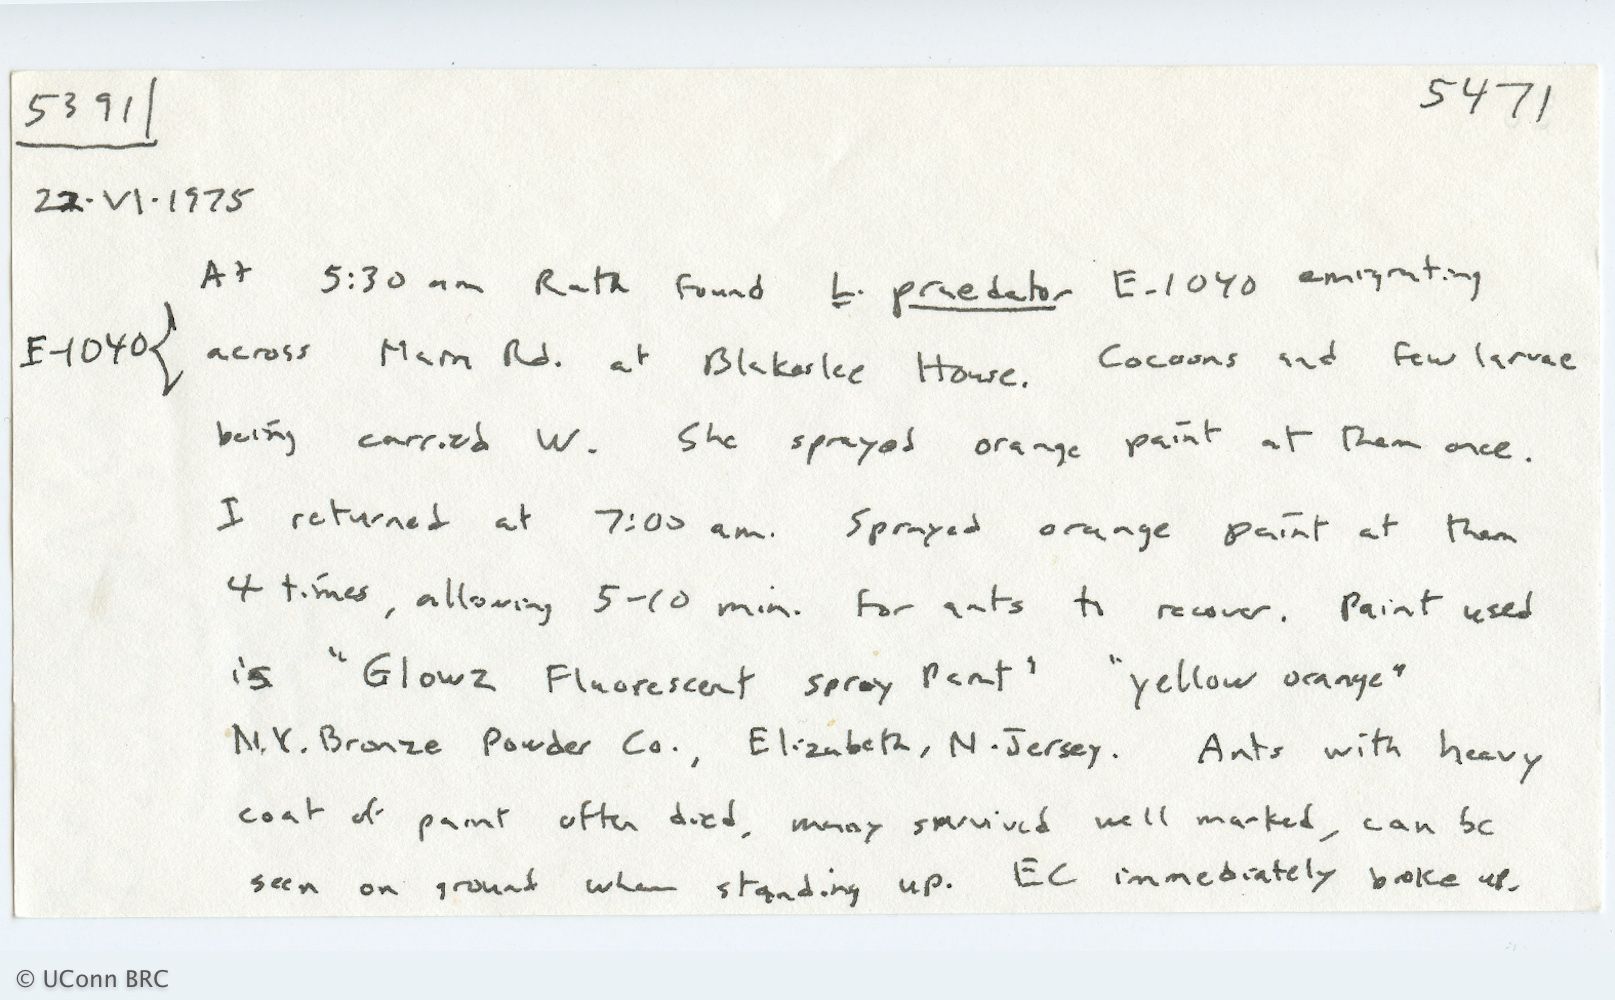 5391 5471
22.VI.1975
At 5:30 am Ruth found L. praedator E-1040 emigrating
E-1040 { across Main Rd. at Blakeslee House. Cocoons and few larvae
being carried W. She sprayed orange paint at them once.
I returned at 7:00 am. Sprayed orange paint at them
4 times, allowing 5-10 min. for ants to recover. Paint used
is "Glowz Fluorescent spray Paint" "yellow orange"
N.Y. Bronze Powder Co., Elizabeth, N. Jersey. Ants with heavy
coat of paint often died, many survived well marked, can be
seen on ground when standing up. EC immediately broke up.
© UConn BRC